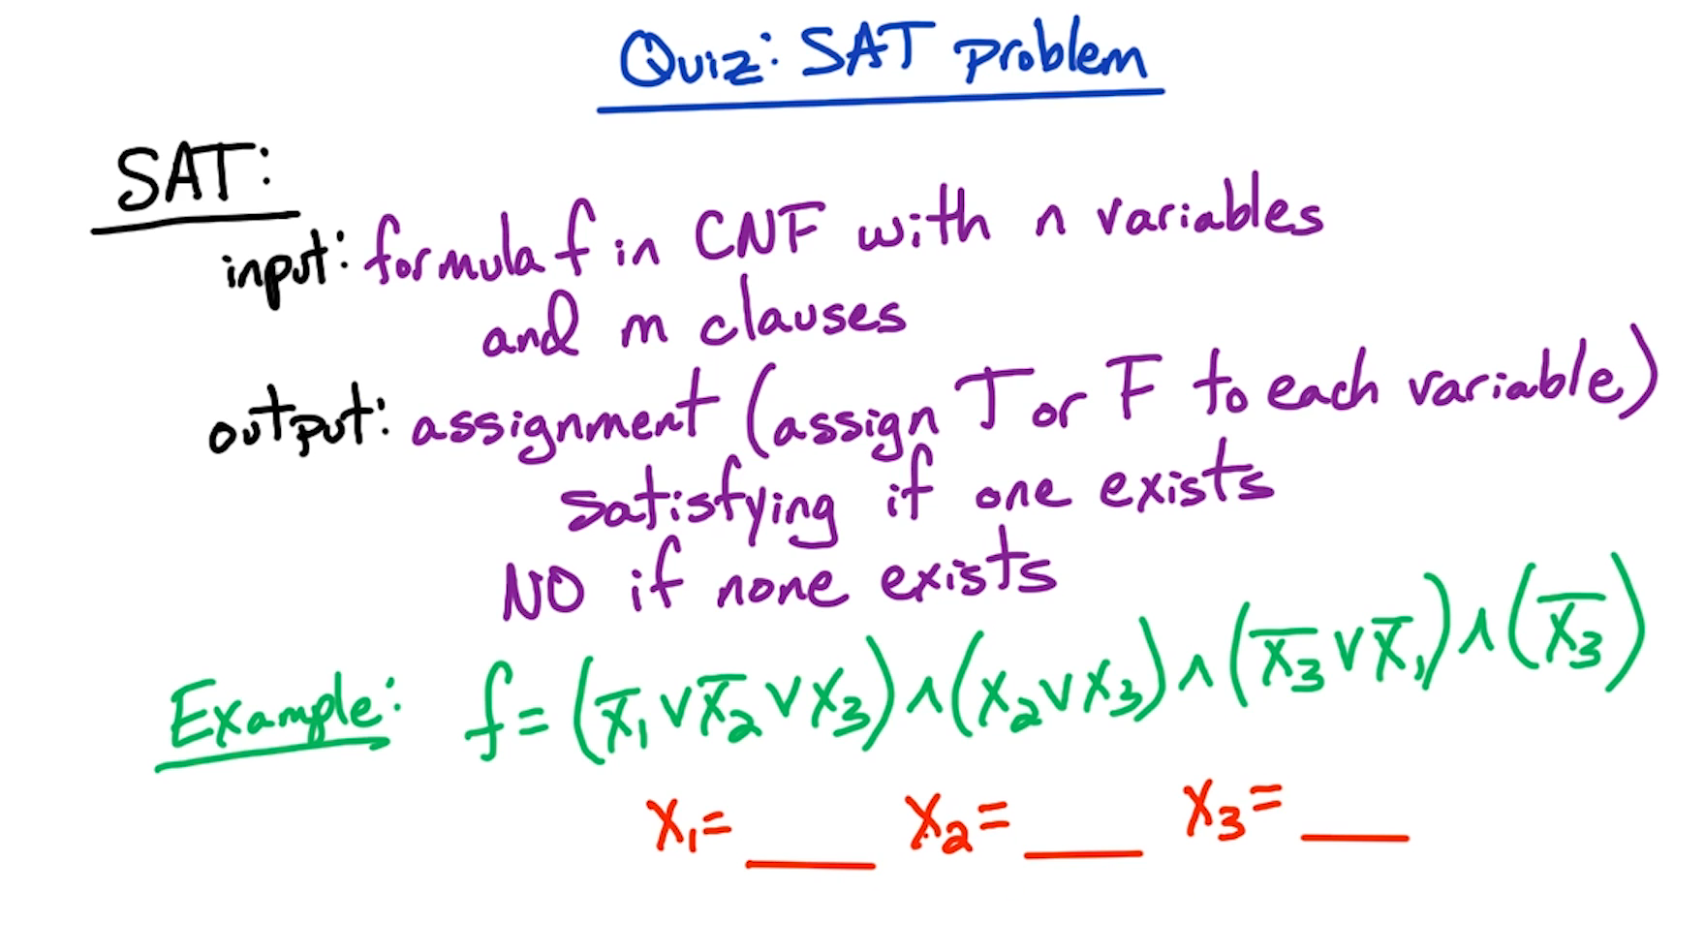 Quiz: SAT problem
SAT:
input: formula f in CNF with n variables
and m clauses
output: assignment (assign T or F to each variable)
satisfying if one exists
NO if none exists
Example: f = (x̅₁ ∨ x̅₂ ∨ x₃) ∧ (x₂ ∨ x₃) ∧ (x̅₃ ∨ x̅₁) ∧ (x̅₃)
x₁ = ___ x₂ = ___ x₃ = ___